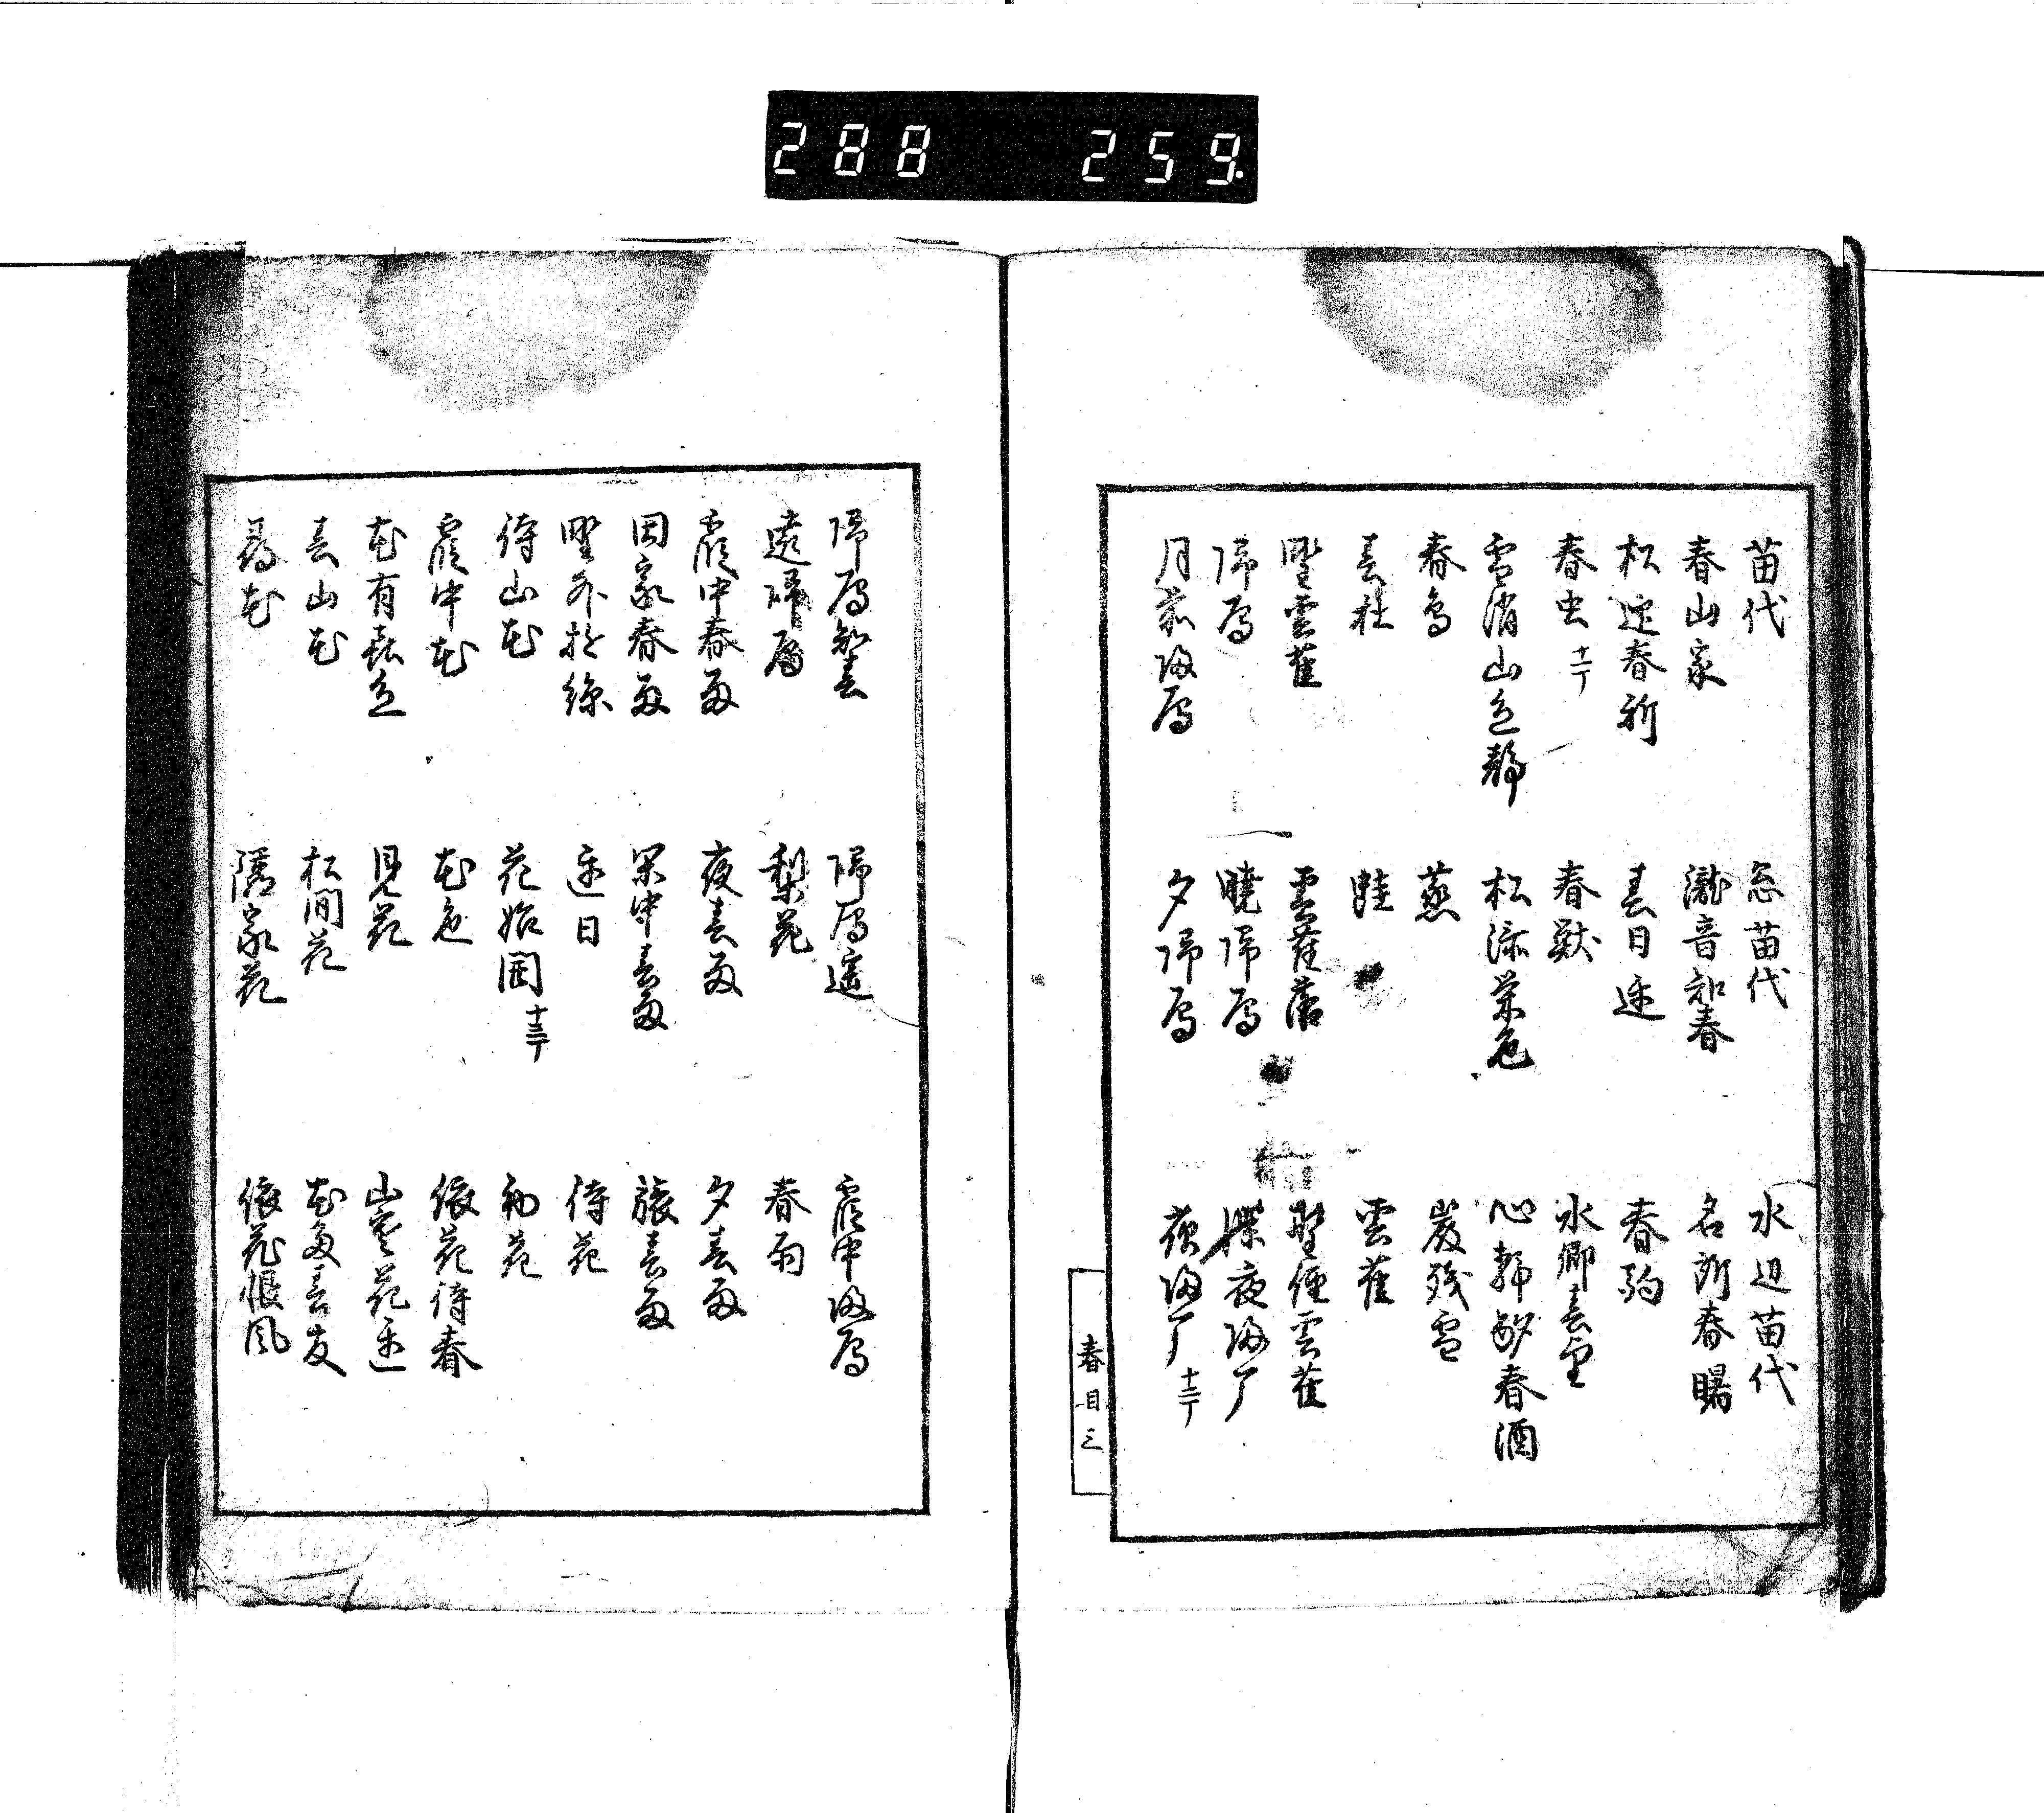 288 259.
苗代 急苗代 水辺苗代
春山家 瀧音知春 名所春曙
松迎春新 春日遅 春駒
春虫 十一丁 春獣 水郷春望
雪消山色静 松添栄色 心静酌春酒
春鳥 燕 巌残雪
春杜 蛙 雲雀
野雲雀 雲雀落 野径雲雀
帰雁 暁帰雁 深夜帰厂
月前帰雁 夕帰雁 夜帰厂 十二丁
春目三
帰雁知春 帰雁遥 霞中帰雁
遠帰雁 梨花 春雨
霞中春雨 夜春雨 夕春雨
田家春雨 閑中春雨 旅春雨
野外柳緑 遅日 待花
待山花 花始開 十三丁 初花
霞中花 花色 依花待春
花有喜色 見花 山寒花遅
春山花 松間花 花多春友
尋花 隣家花 依花恨風